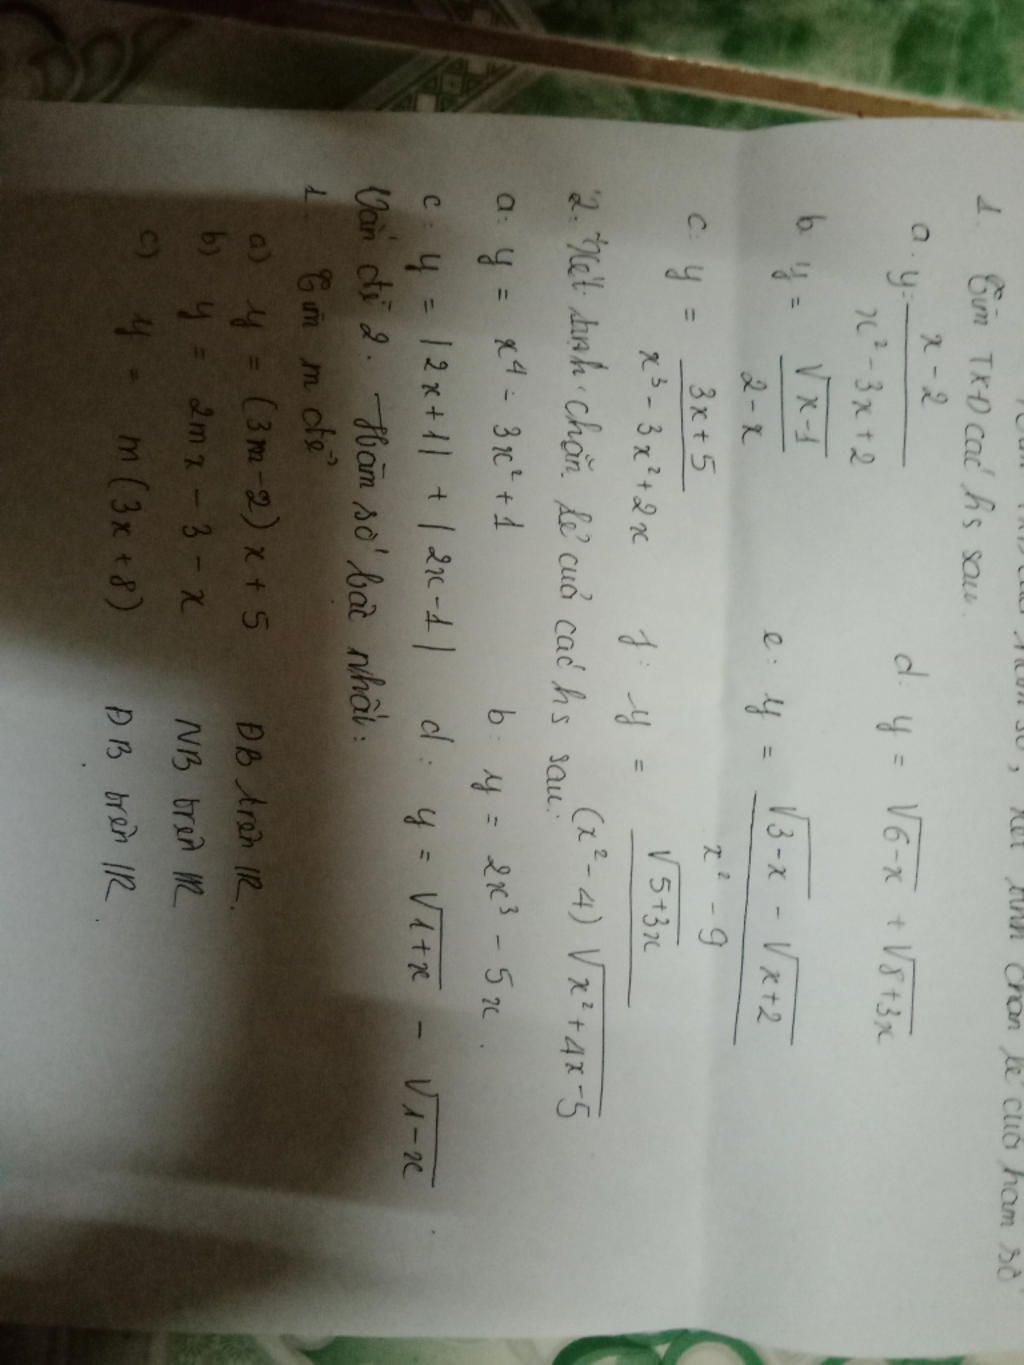 hàm số, xét tính chẵn lẻ của hàm số
1. Tìm TXĐ các hs sau.
a. y = \frac{x-2}{x² - 3x + 2}    d. y = √(6-x) + √(8+3x)
b. y = \frac{√(x-1)}{2-x}    e: y = \frac{√(3-x) - √(x+2)}{x² - 9}
c. y = \frac{3x+5}{x³ - 3x² + 2x}    f: y = \frac{√(5+3x)}{(x²-4)√(x²+4x-5)}
2: Xét tính chẵn lẻ của các hs sau:
a: y = x⁴ - 3x² + 1    b: y = 2x³ - 5x.
c: y = |2x+1| + |2x-1|    d: y = √(1+x) - √(1-x).
Vấn đề 2. Hàm số bậc nhất:
1. Tìm m để
a) y = (3m-2)x + 5    ĐB trên IR.
b) y = 2mx - 3 - x    NB trên IR
c) y = m(3x+8)    ĐB trên IR.